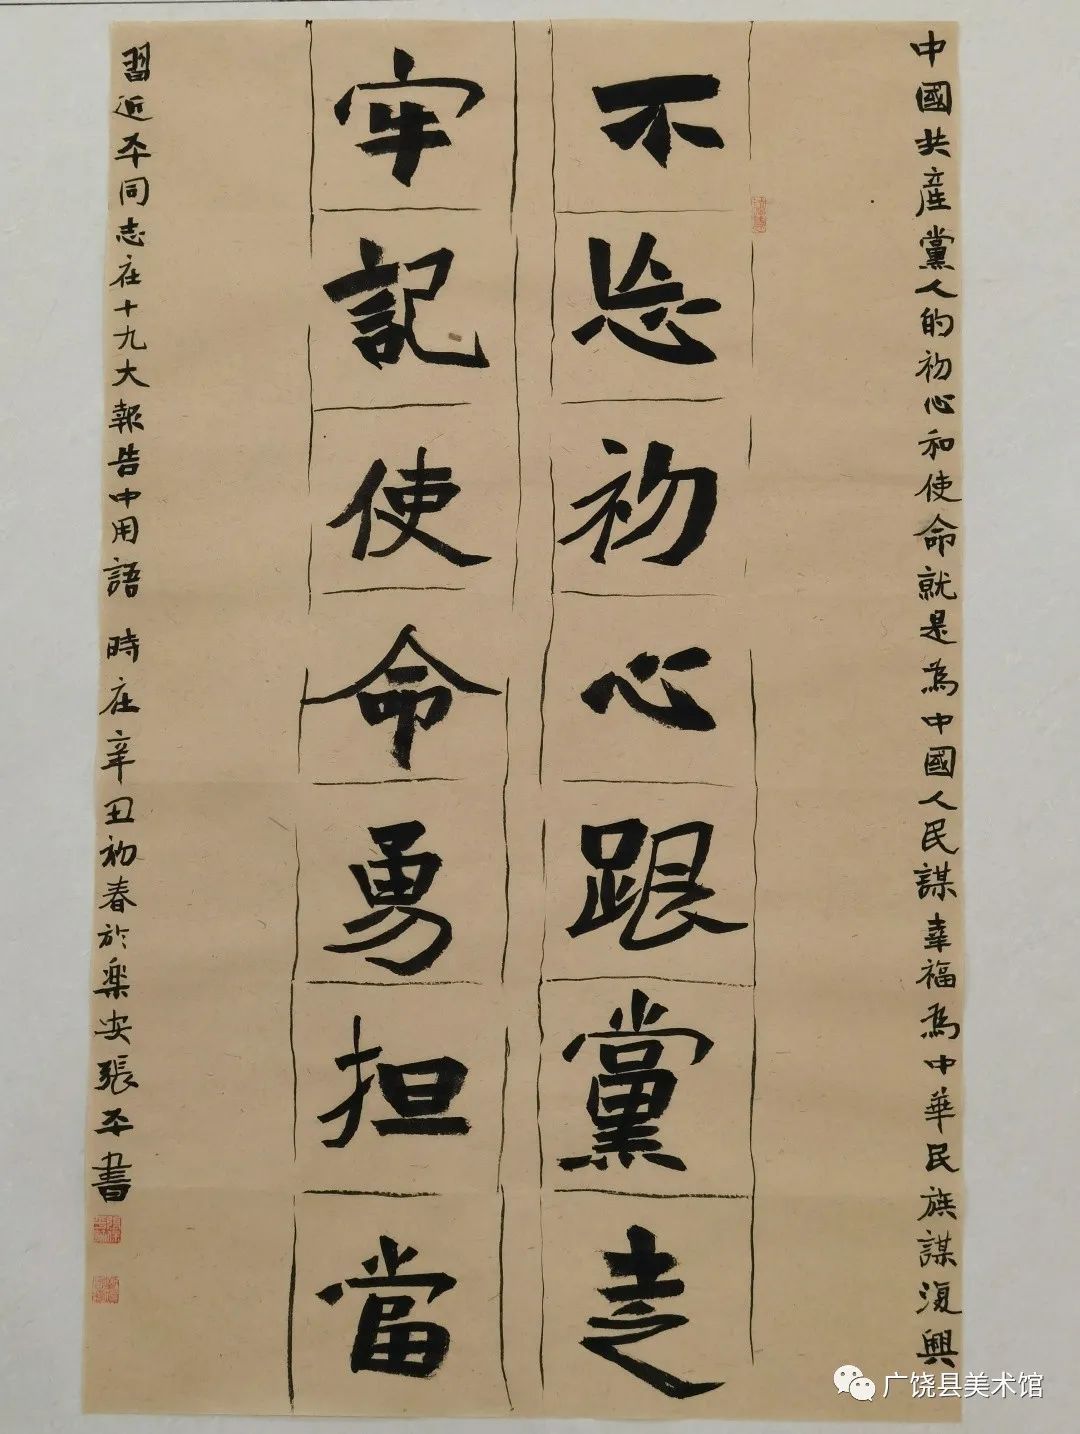 中國共產黨人的初心和使命就是為中國人民謀幸福為中華民族謀復興
不忘初心跟黨走
牢記使命勇担當
習近平同志在十九大報告中用語 時在辛丑初春於樂安張平書
广饶县美术馆